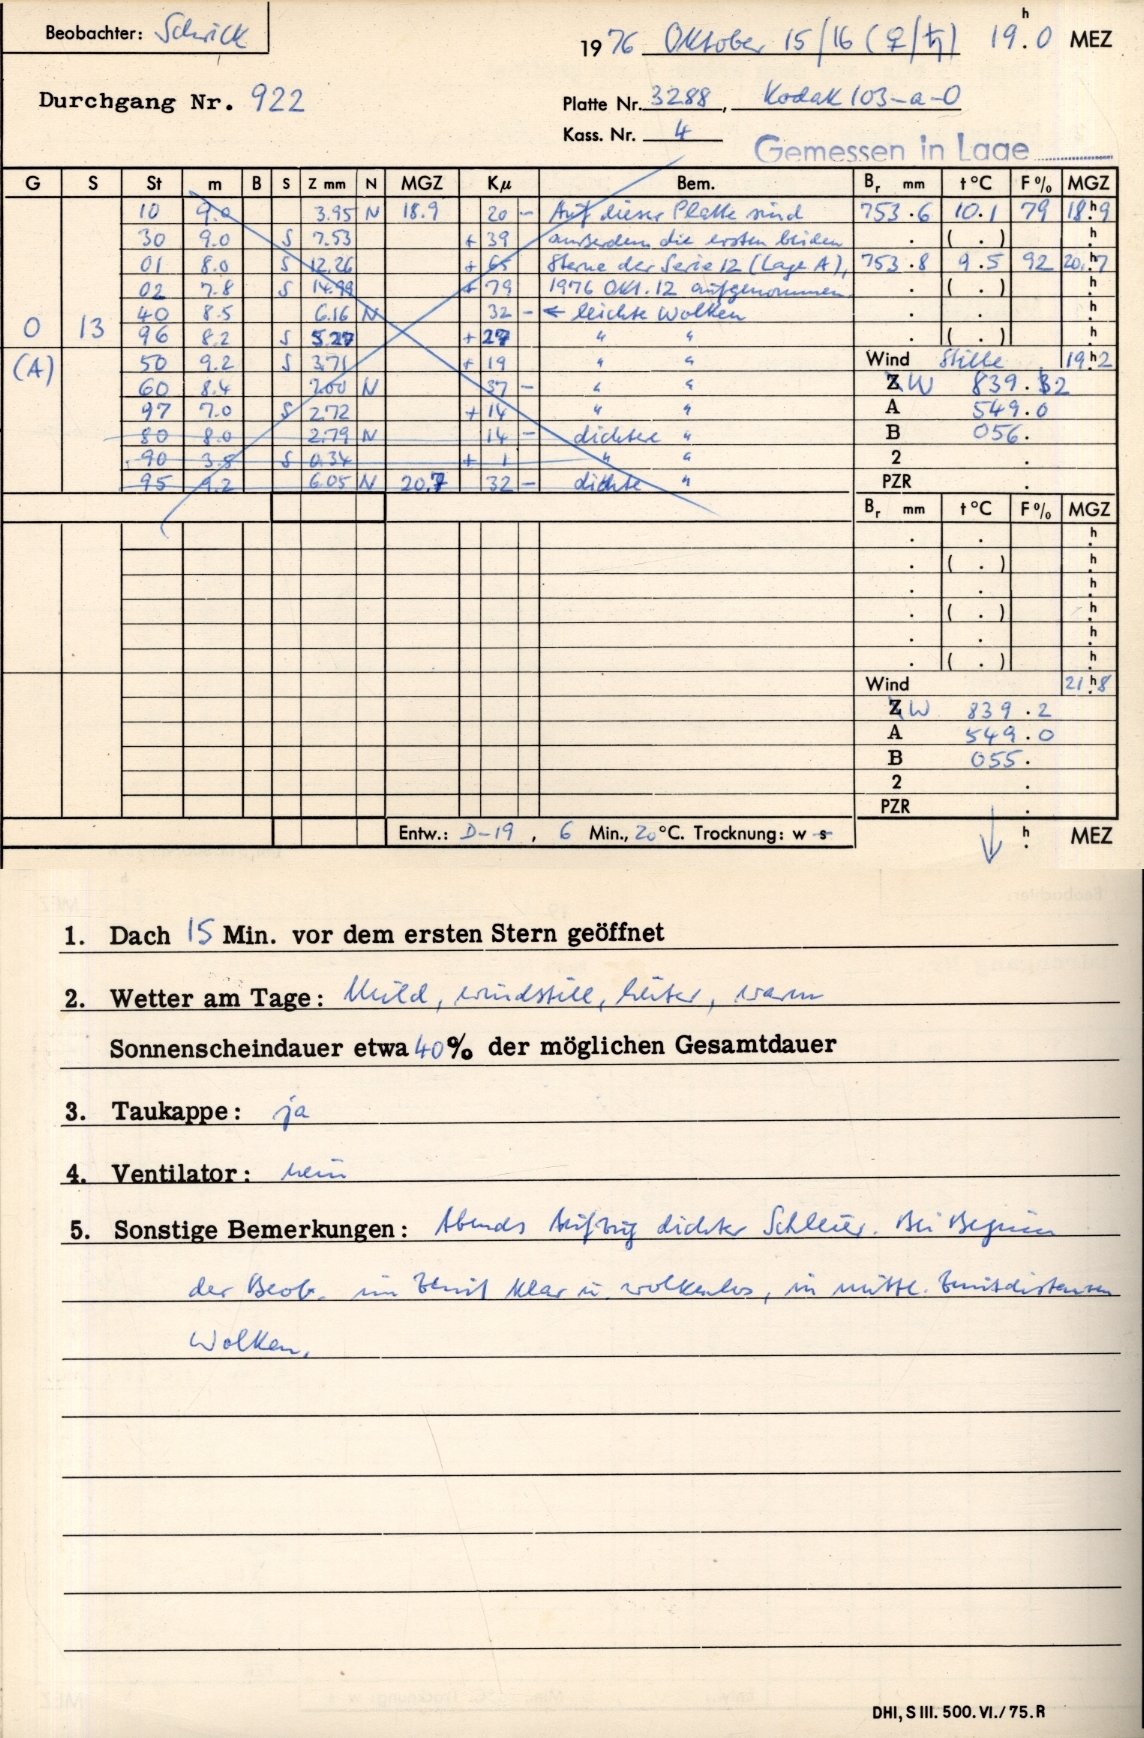 Beobachter: Schrick
1976 Oktober 15/16 (♀/♄) 19ʰ.0 MEZ
Durchgang Nr. 922
Platte Nr. 3288, Kodak 103-a-O
Kass. Nr. 4
Gemessen in Lage
G S St m B S Z mm N MGZ Kμ Bem. Bᵣ mm t°C F% MGZ
10 9.0 3.95 N 18.9 20 – Auf dieser Platte sind 753.6 10.1 79 18ʰ.9
30 9.0 S 7.53 + 39 außerdem die ersten beiden . ( . ) ʰ.
01 8.0 S 12.26 + 65 Sterne der Serie 12 (Lage A), 753.8 9.5 92 20ʰ.7
02 7.8 S 14.99 + 79 1976 Okt. 12 aufgenommen. . ( . ) ʰ.
40 8.5 6.16 N 32 – ← leichte Wolken . . ʰ.
0 13 96 8.2 S 5.27 + 27 " " . ( . ) ʰ.
(A) 50 9.2 S 3.71 + 19 " " Wind Stille 19ʰ.2
60 8.4 7.00 N 37 – " " Z W 839.2
97 7.0 S 2.72 + 14 " " A 549.0
80 8.0 2.79 N 14 – dichtere " B 056.
90 3.5 S 0.34 + 1 " " 2 .
95 9.2 6.05 N 20.7 32 – dichte " PZR .
Bᵣ mm t°C F% MGZ
. . ʰ.
. ( . ) ʰ.
. . ʰ.
. ( . ) ʰ.
. . ʰ.
. ( . ) ʰ.
Wind 21ʰ.8
Z W 839.2
A 549.0
B 055.
2 .
PZR .
Entw.: D-19, 6 Min., 20°C. Trocknung: w s ʰ. MEZ
1. Dach 15 Min. vor dem ersten Stern geöffnet
2. Wetter am Tage: Mild, windstill, heiter, warm
Sonnenscheindauer etwa 40% der möglichen Gesamtdauer
3. Taukappe: ja
4. Ventilator: nein
5. Sonstige Bemerkungen: Abends Aufzug dichter Schleier. Bei Beginn
der Beob. im Zenit klar u. wolkenlos, in mittl. Zenitdistanzen
Wolken.
DHI, S III. 500. VI./75. R